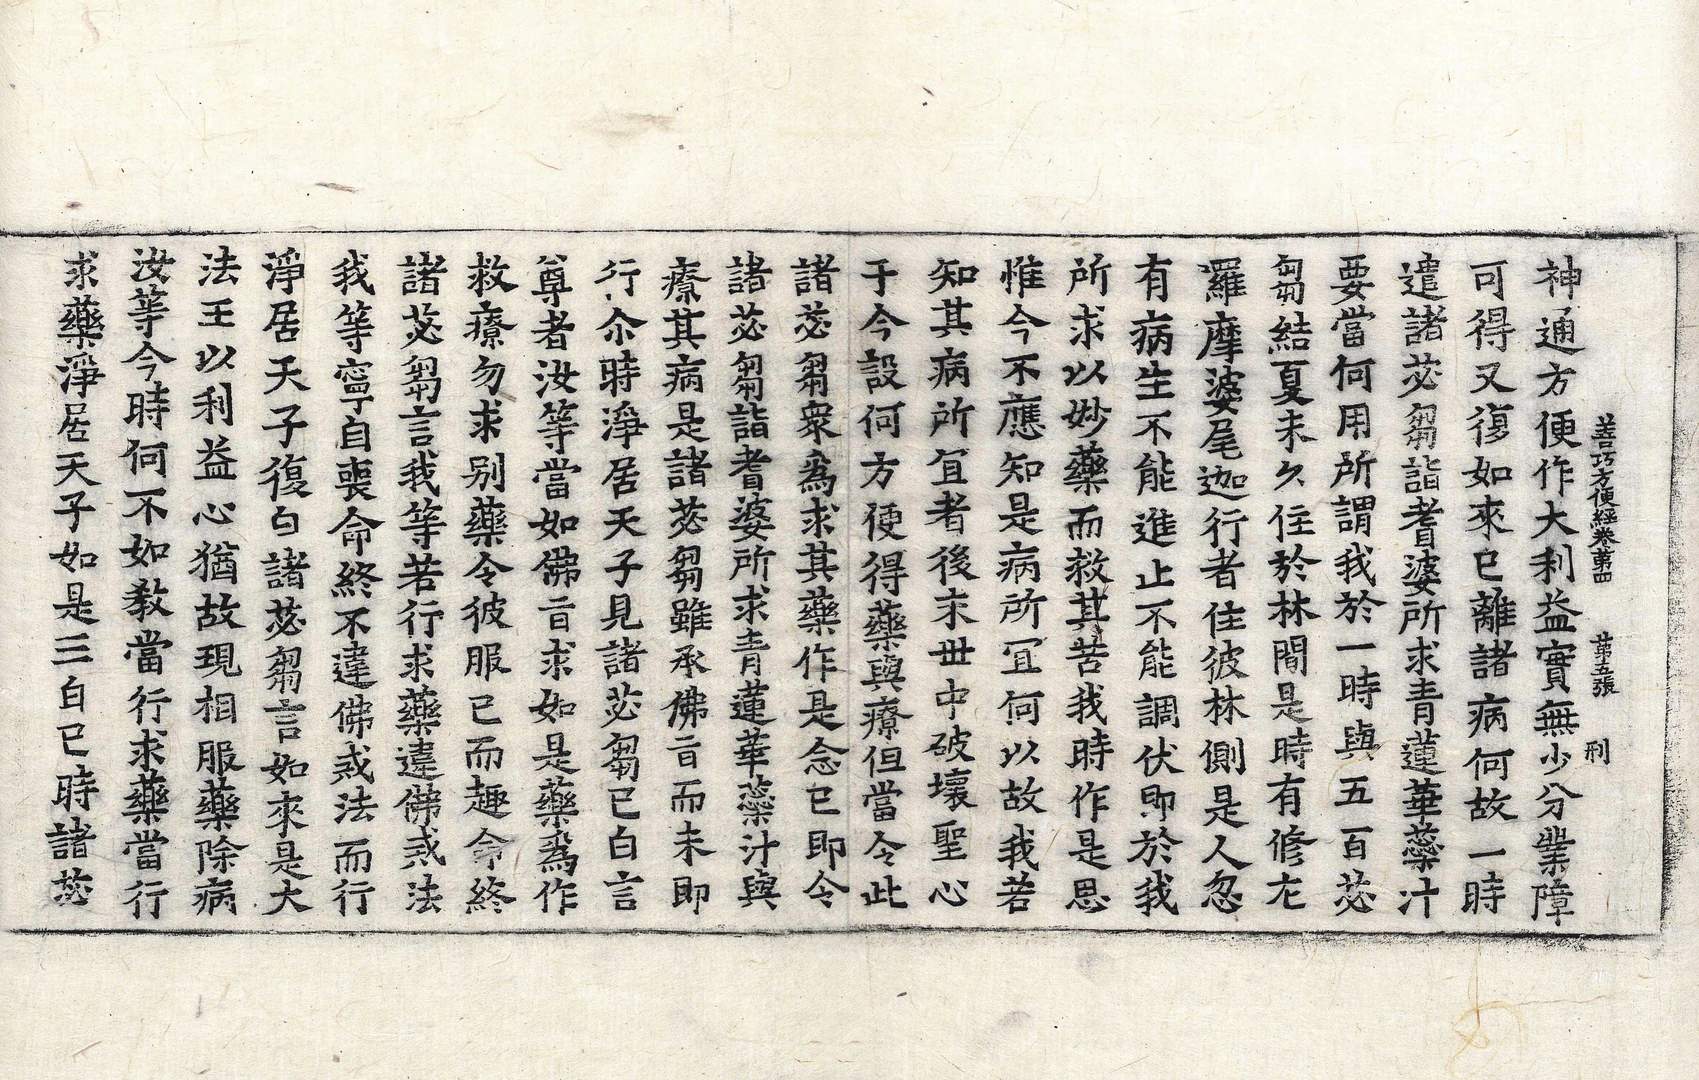 善巧方便經卷第四 第五張 刑
神通方便作大利益實無少分業障
可得又復如來已離諸病何故一時
遣諸苾芻詣耆婆所求青蓮華蘂汁
要當何用所謂我於一時與五百苾
芻結夏未久住於林間是時有修尢
羅摩婆尾迦行者住彼林側是人忽
有病生不能進止不能調伏即於我
所求以妙藥而救其苦我時作是思
惟今不應知是病所冝何以故我若
知其病所冝者後末丗中破壞聖心
于今設何方便得藥與療但當令此
諸苾芻衆爲求其藥作是念已即令
諸苾芻詣耆婆所求青蓮華蘂汁與
療其病是諸苾芻雖承佛旨而未即
行尒時淨居天子見諸苾芻已白言
尊者汝等當如佛旨求如是藥爲作
救療勿求別藥令彼服已而趣命終
諸苾芻言我等若行求藥違佛戒法
我等寧自喪命終不違佛戒法而行
淨居天子復白諸苾芻言如來是大
法王以利益心猶故現相服藥除病
汝等今時何不如教當行求藥當行
求藥淨居天子如是三白已時諸苾